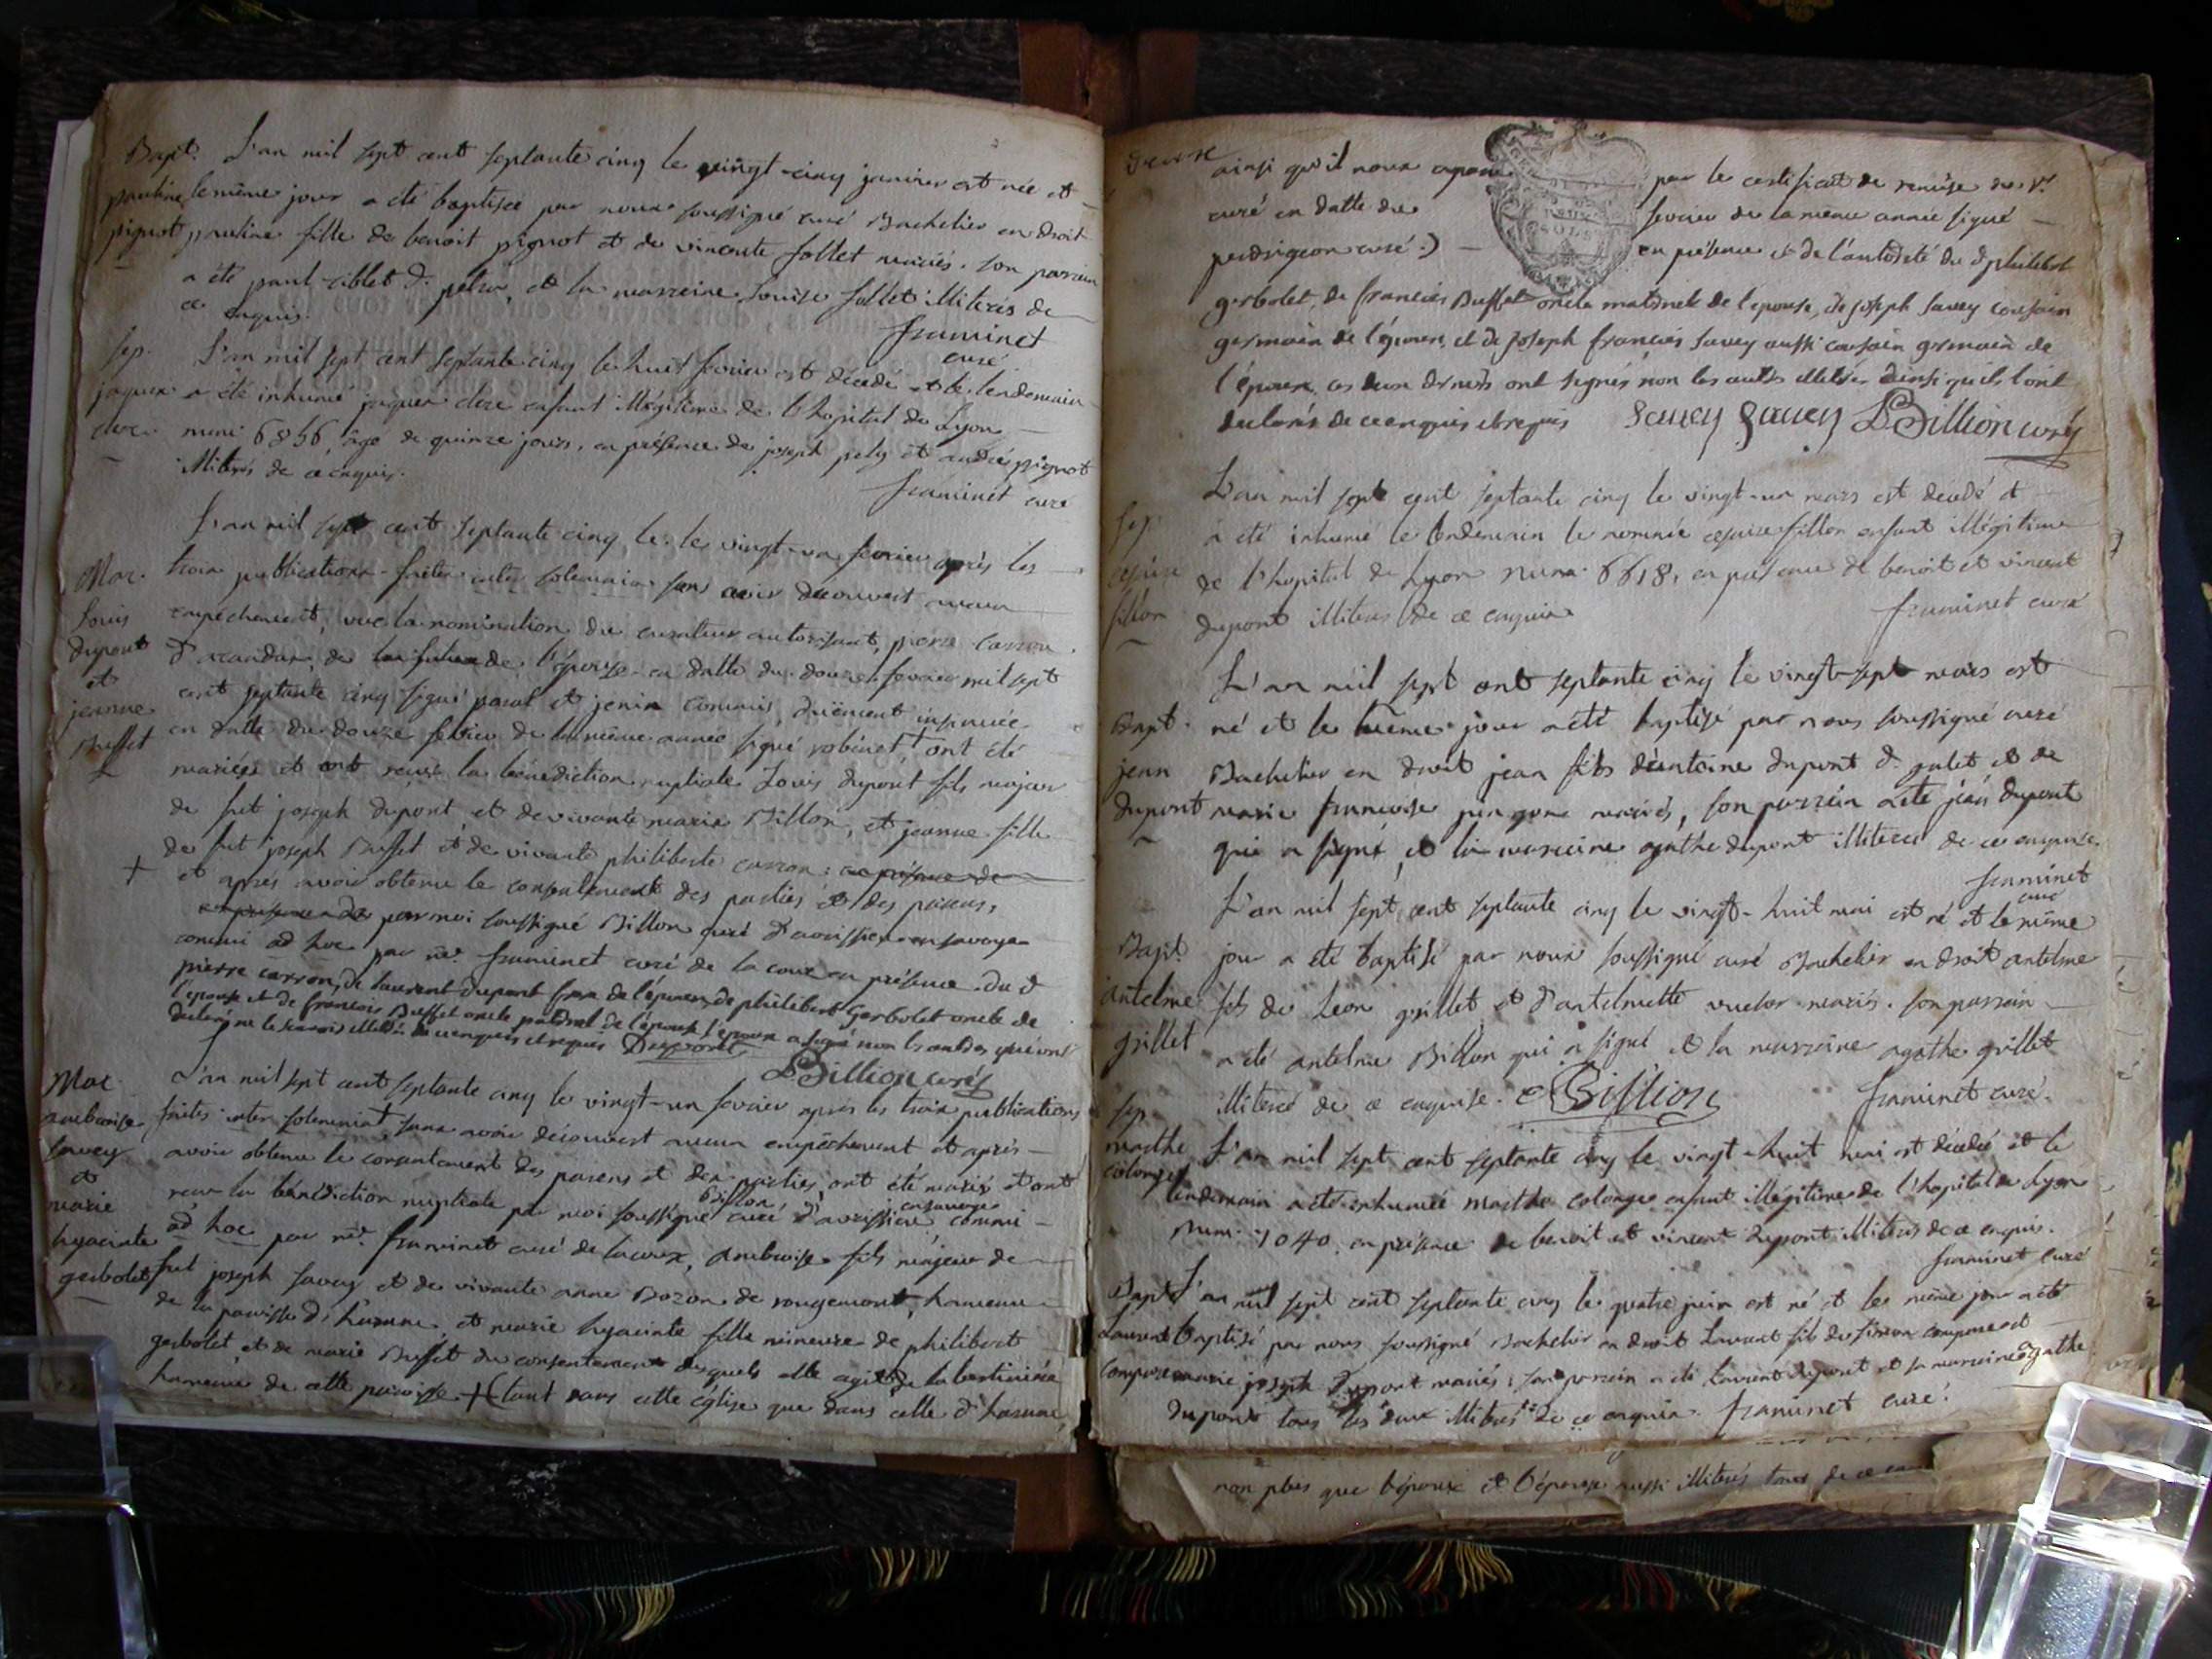 Bapt. L'an mil sept cent septante cinq le vingt-cinq janvier est née et
pauline le même jour a été baptisée par nous soussigné curé Bachelier en droit
pignot pauline fille de benoit pignot et de vincente follet mariés. son parrain
a été paul + et la marreine Louise follet illiterés de
ce enquis.
framinet
curé
sep. L'an mil sept cent septante cinq le huit fevrier est décédé et le lendemain
jaques a été inhumé jaques enfant illégitime de l'hopital de Lyon
num: 6856, âgé de quinze jours, en présence de joseph pely et andré pignot
illiterés de ce enquis.
framinet curé
L'an mil sept cent septante cinq le. le vingt-un fevrier après les
Mar. trois publications faites inter solemnia sans avoir decouvert aucun
Louis empêchement, vue la nomination du curateur autorisant, pierre carron
dupont de l'épouse en datte du douze fevrier mil sept
et cent septante cinq signé pascal et jenin commis, duëment insinuée
jeanne en datte du douze fevrier de la même année signé robinet, + ont été
Buffet mariés et ont reçu la bénédiction nuptiale Louis dupont fils majeur
de fut joseph dupont et de vivante marie Billon, et jeanne fille
de fut joseph Buffet et de vivante philiberte carron: en présence de
+ et après avoir obtenu le consentement des parties et des parens,
en présence de par moi soussigné Billon curé d'avissieu en savoye
commi ad hoc par mr. framinet curé de la coux en présence du d
pierre carron, de laurent dupont frere de l'époux, de philibert Gerbolet oncle de
l'épouse et de francois Buffet oncle paternel de l'épouse l'époux a signé non les autres qui ont
declaré ne le scavoir illiterés de ce enquis et requis Dupont
LBillion curé
Mar. L'an mil sept cent septante cinq le vingt-un fevrier après les trois publications
ambroise faites inter solemnia, sans avoir découvert aucun empêchement et après
savey avoir obtenu le consentement des parens et des parties, ont été mariés et ont
et reçu la bénédiction nuptiale par moi soussigné Billon curé d'avissieu en savoye commi
marie ad hoc par mr. framinet curé de lacoux, ambroise fils majeur de
hyacinte fut joseph savey et de vivante anne Bozon de rougemont, hameau
gerbolet de la paroisse d'hauune, et marie hyacinte fille mineure de philibert
gerbolet et de marie Buffet du consentement desquels elle agit, de la bertiniere
hameau de cette paroisse. + (tant dans cette église que dans celle d'hauune,
ainsi qu'il nous par le certificat de remise du sr.
curé en datte du fevrier de la même année signé
perdrigeon curé.) en présence et de l'autorité du d philibert
gerbolet, de francois Buffet oncle maternel de l'épouse, de joseph savey cousain
germain de l'époux, et de joseph françois savey aussi cousain germain de
l'époux, ces deux derniers ont signés non les autres illiterés ainsi qu'ils l'ont
declarés de ce enquis et requis Savey Savey LBillion curé
L'an mil sept cent septante cinq le vingt-un mars est décédé et
sep. a été inhumé le lendemain le nommé cesaire fillon enfant illégitime
cesaire de l'hopital de Lyon num. 6618, en présence de benoit et vincent
fillon dupont illiterés de ce enquis
framinet curé
L'an mil sept cent septante cinq le vingt-sept mars est
Bapt. né et le même jour a été baptisé par nous soussigné curé
jean Bachelier en droit jean fils d'antoine dupont d. galet et de
dupont marie francoise mariés, son parrain a été jean dupont
qui a signé, et la marreine agathe dupont illiterée de ce enquise.
framinet
curé
L'an mil sept cent septante cinq le vingt-huit mai est né et le même
Bapt. jour a été baptisé par nous soussigné curé Bachelier en droit antelme
antelme fils de Leon grillet et d'antelmette mariés. son parrain
grillet a été antelme Billon qui a signé et la marreine agathe grillet
illiterée de ce enquise. ABillion framinet curé.
sep.
marthe L'an mil sept cent septante cinq le vingt-huit mai est décédée et le
colonge lendemain a été inhumée marthe colonge enfant illégitime de l'hopital de Lyon
num: 7040, en présence de benoit et vincent dupont illiterés de ce enquis.
framinet curé
Bapt. L'an mil sept cent septante cinq le quatre juin est né et le même jour a été
Laurent baptisé par nous soussigné Bachelier en droit Laurent fils de simon compone et
compone marie joseph dupont mariés; son parrain a été Laurent dupont et sa marreine agathe
dupont tous les deux illiterés de ce enquis. framinet curé.
non plus que l'époux et l'épouse aussi illiterés tous de ce